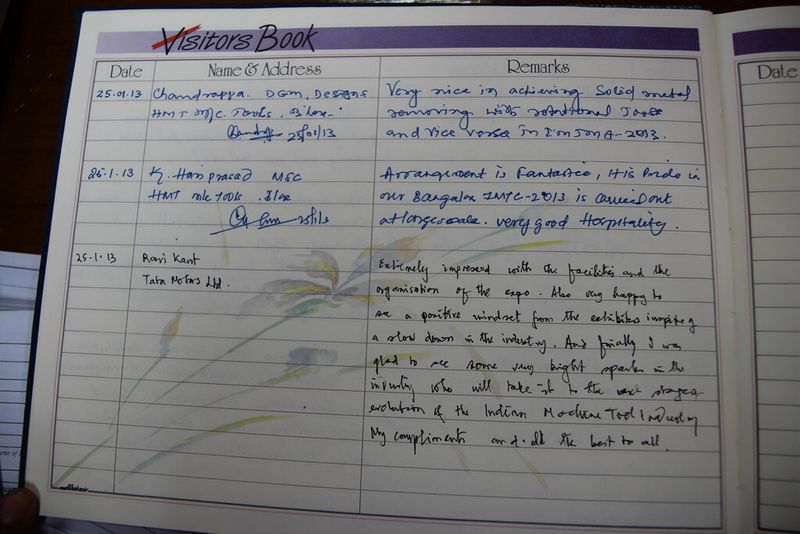 Visitors Book
Date Name & Address Remarks Date
25.01.13 Chandrappa. DGM, Designs Very nice in achieving Solid metal
HMT M/c Tools. B'lore removing with rotational Tools
25/01/13 and vice versa in 2013.
25.1.13 K. Hari prasad MSC Arrangement is Fantastic, It is Pride in
HMT Tools. our Bangalore IMTC-2013 is carried out
25/1/13 at large scale. very good Hospitality.
25.1.13 Ravi Kant Extremely impressed with the facilities and the
Tata Motors Ltd. organisation of the expo. Also very happy to
see a positive mindset from the exhibitors inspite of
a slow down in the industry. And finally I was
glad to see some very bright sparks in the
industry who will take it to the next stage
evolution of the Indian Machine Tool Industry
My compliments and all the best to all.